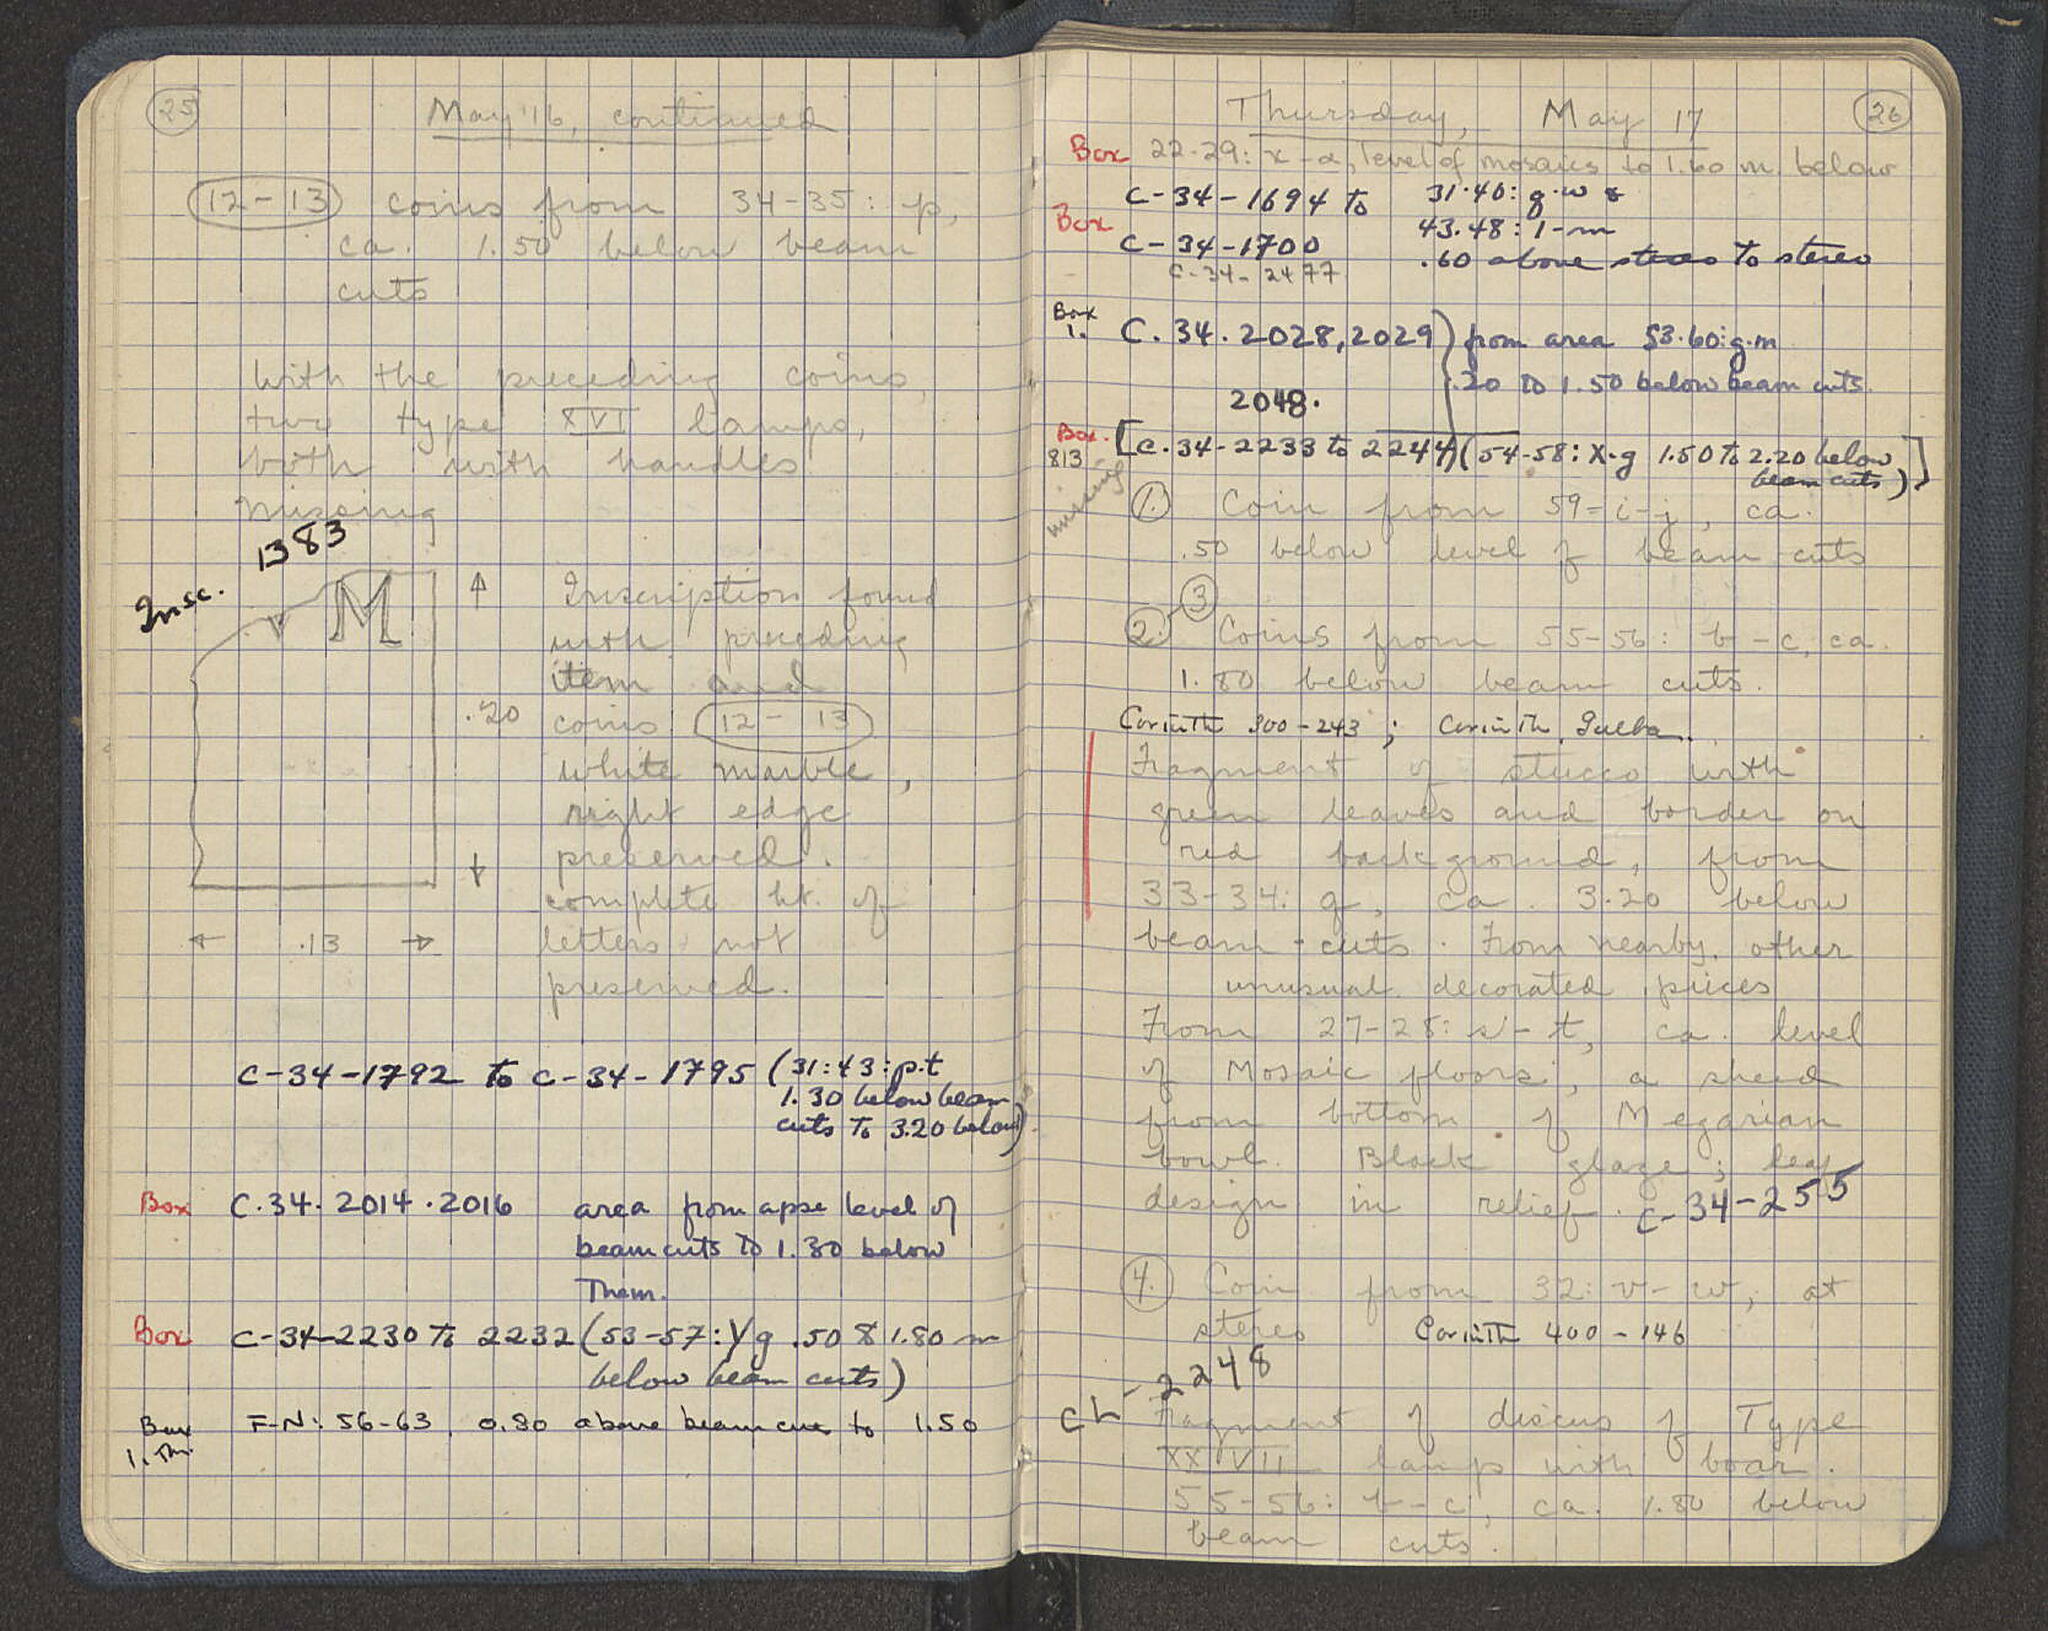 25
May 16, continued
12-13 coins from 34-35: p,
ca. 1.50 below beam
cuts
With the preceding coins,
two type XVI lamps,
both with handles
missing
1383
Insc.
M
Inscription found
with preceding
item and
.20 coins 12-13
white marble,
right edge
preserved.
complete ht. of
.13 letters not
preserved.
C-34-1792 to C-34-1795 (31:43:p.t
1.30 below beam
cuts to 3.20 below)
Box C.34.2014.2016 area from apse level of
beam cuts to 1.30 below
Them.
Box C-34-2230 To 2232 (53-57: g .50 & 1.80 m
below beam cuts)
Box F-N: 56-63, 0.80 above beam cuts to 1.50
1.
26
Thursday, May 17
Box 22-29: x-a, level of mosaics to 1.60 m. below
C-34-1694 to 31.40: g.w &
Box 43.48: l-m
C-34-1700
.60 above stereo to stereo
C-34-2477
Box
1. C.34.2028, 2029 } from area 53.60:g.m
.20 to 1.50 below beam cuts.
2048.
Box. [C.34-2233 to 2244 (54-58: X-g 1.50 to 2.20 below
813 beam cuts)]
missing
1. Coin from 59-i-j, ca.
.50 below level of beam cuts
3
2. Coins from 55-56: b-c, ca.
1.80 below beam cuts.
Corinth 300-243; Corinth, Galba.
Fragment of stucco with
green leaves and border on
red background, from
33-34: q, ca. 3.20 below
beam-cuts. From nearby, other
unusual decorated pieces
From 27-28: s-t, ca. level
of Mosaic floors, a sherd
from bottom of Megarian
bowl. Black glaze; leaf
design in relief. C-34-255
4. Coin from 32: v-w, at
stereo Corinth 400-146
CL-2248
Fragment of discus of Type
XXVII lamp with boar.
55-56: b-c, ca. 1.80 below
beam cuts.